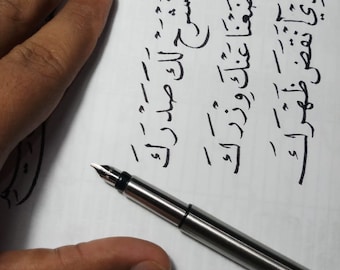 نَشْرَحْ لَكَ صَدْرَكَ
ضَعْنَا عَنْكَ وِزْرَكَ
ذِي أَنْقَضَ ظَهْرَكَ